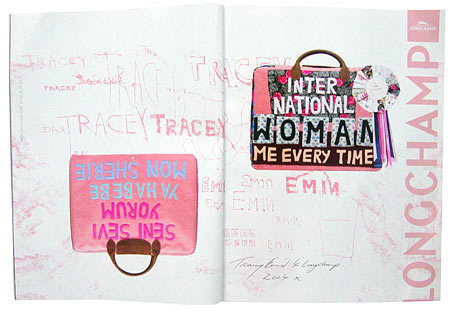 TRACEY
TRACEY
TRACEY
TRACEY
TRACEY
TRACEY
SENI SEVI
YORUM
YA HABEBE
MON SHERIE
LONGCHAMP
INTER
NATIONAL
WOMAN
ME EVERY TIME
Emin
Emin
EMIN
EMIN
EMIN
Tracey Emin & Longchamp
2004 x
LONGCHAMP